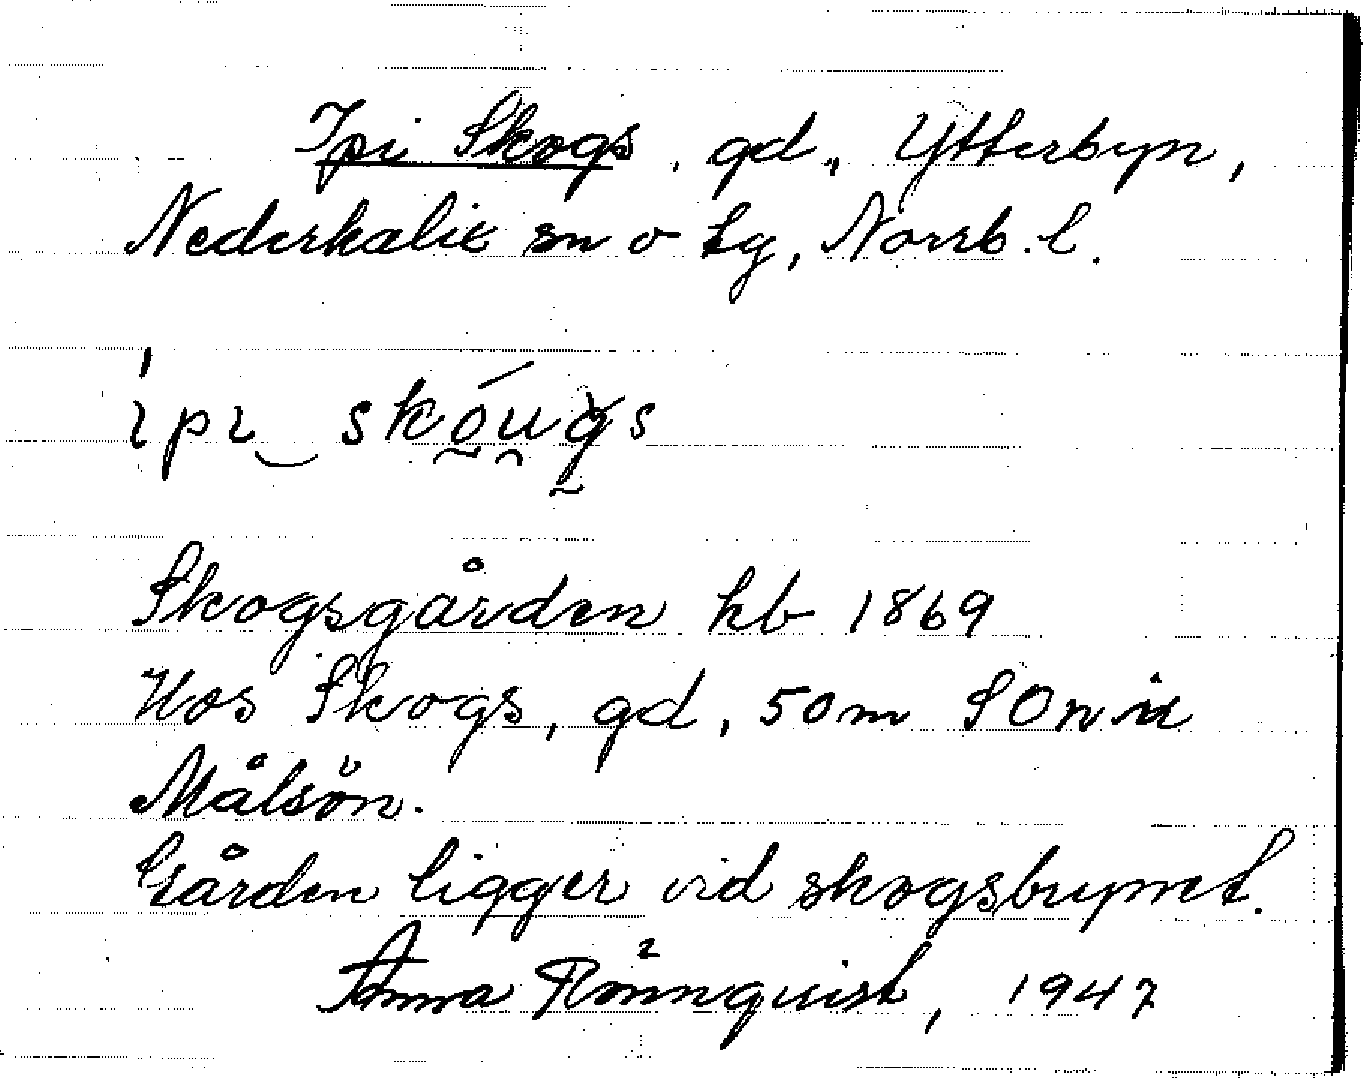 Ipi Skogs, gd., Ytterbyn,
Nederkalix sn o tg, Norrb. l.
ɩpɩ skóugs
Skogsgården kb 1869
Hos Skogs, gd, 50 m SO nr
Målsön.
Gården ligger vid skogsbrynet.
Anna Rönnquist, 1947